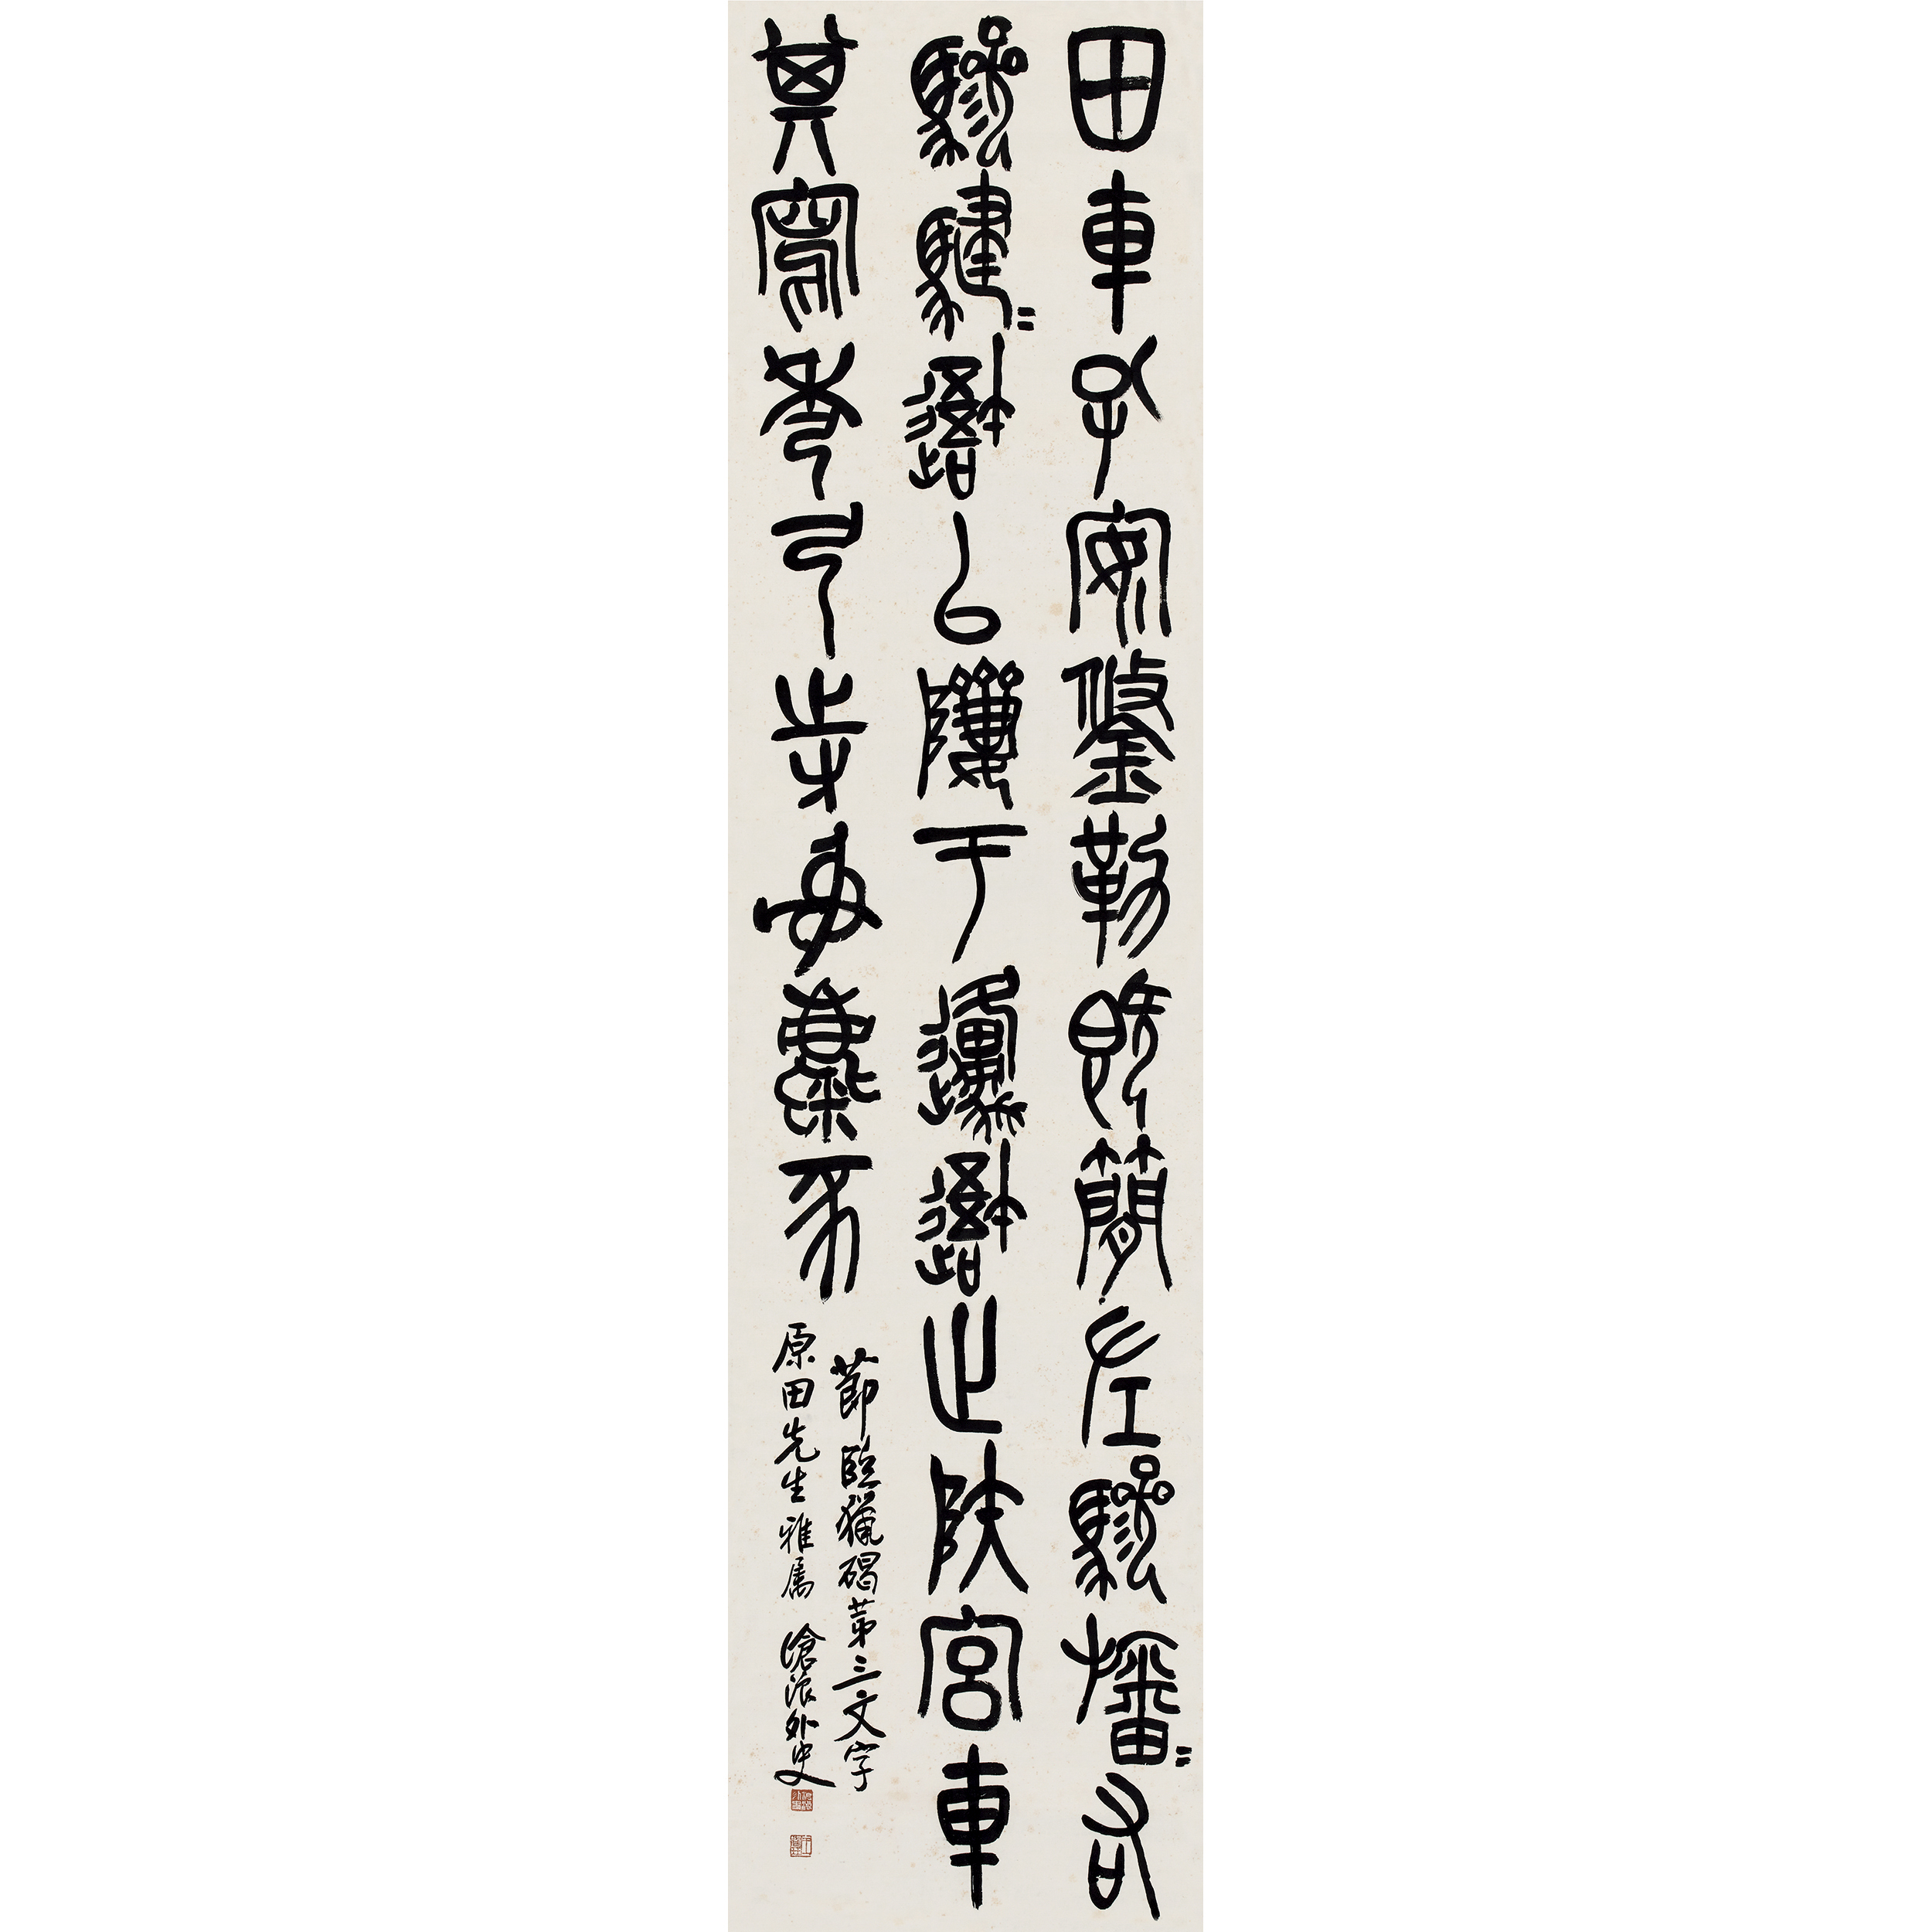 田車孔安鋚勒既簡左驂旛=右
驂騝=吾以隮于邍吾止陕宮車
其寫秀弓寺射麋豕
節臨獵碣第三文字
原田先生雅屬 滄浪外史